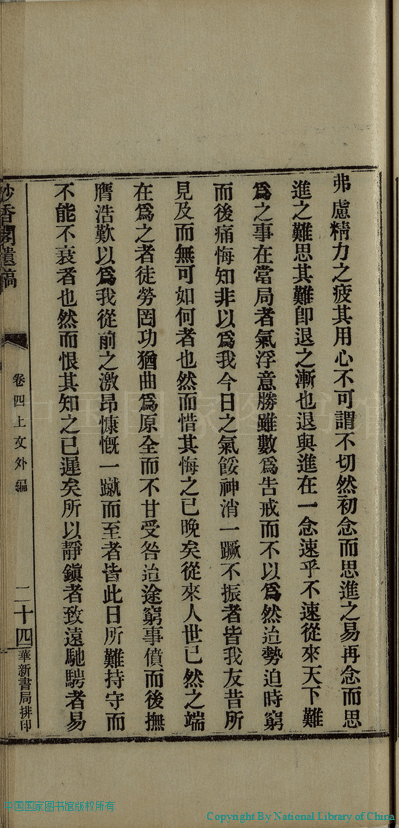 弗慮精力之疲其用心不可謂不切然初念而思進之易再念而思
進之難思其難卽退之漸也退與進在一念速乎不速從來天下難
爲之事在當局者氣浮意勝雖數爲告戒而不以爲然迨勢迫時窮
而後痛悔知非以爲我今日之氣餒神消一蹶不振者皆我友昔所
見及而無可如何者也然而惜其悔之已晚矣從來人世已然之端
在爲之者徒勞罔功猶曲爲原全而不甘受咎迨途窮事僨而後撫
膺浩歎以爲我從前之激昂慷慨一蹴而至者皆此日所難持守而
不能不衰者也然而恨其知之已遲矣所以靜鎭者致遠馳騁者易
妙香閣遺稿
卷四上文外編
二十四
華新書局排印
中国国家图书馆版权所有
Copyright By National Library of China